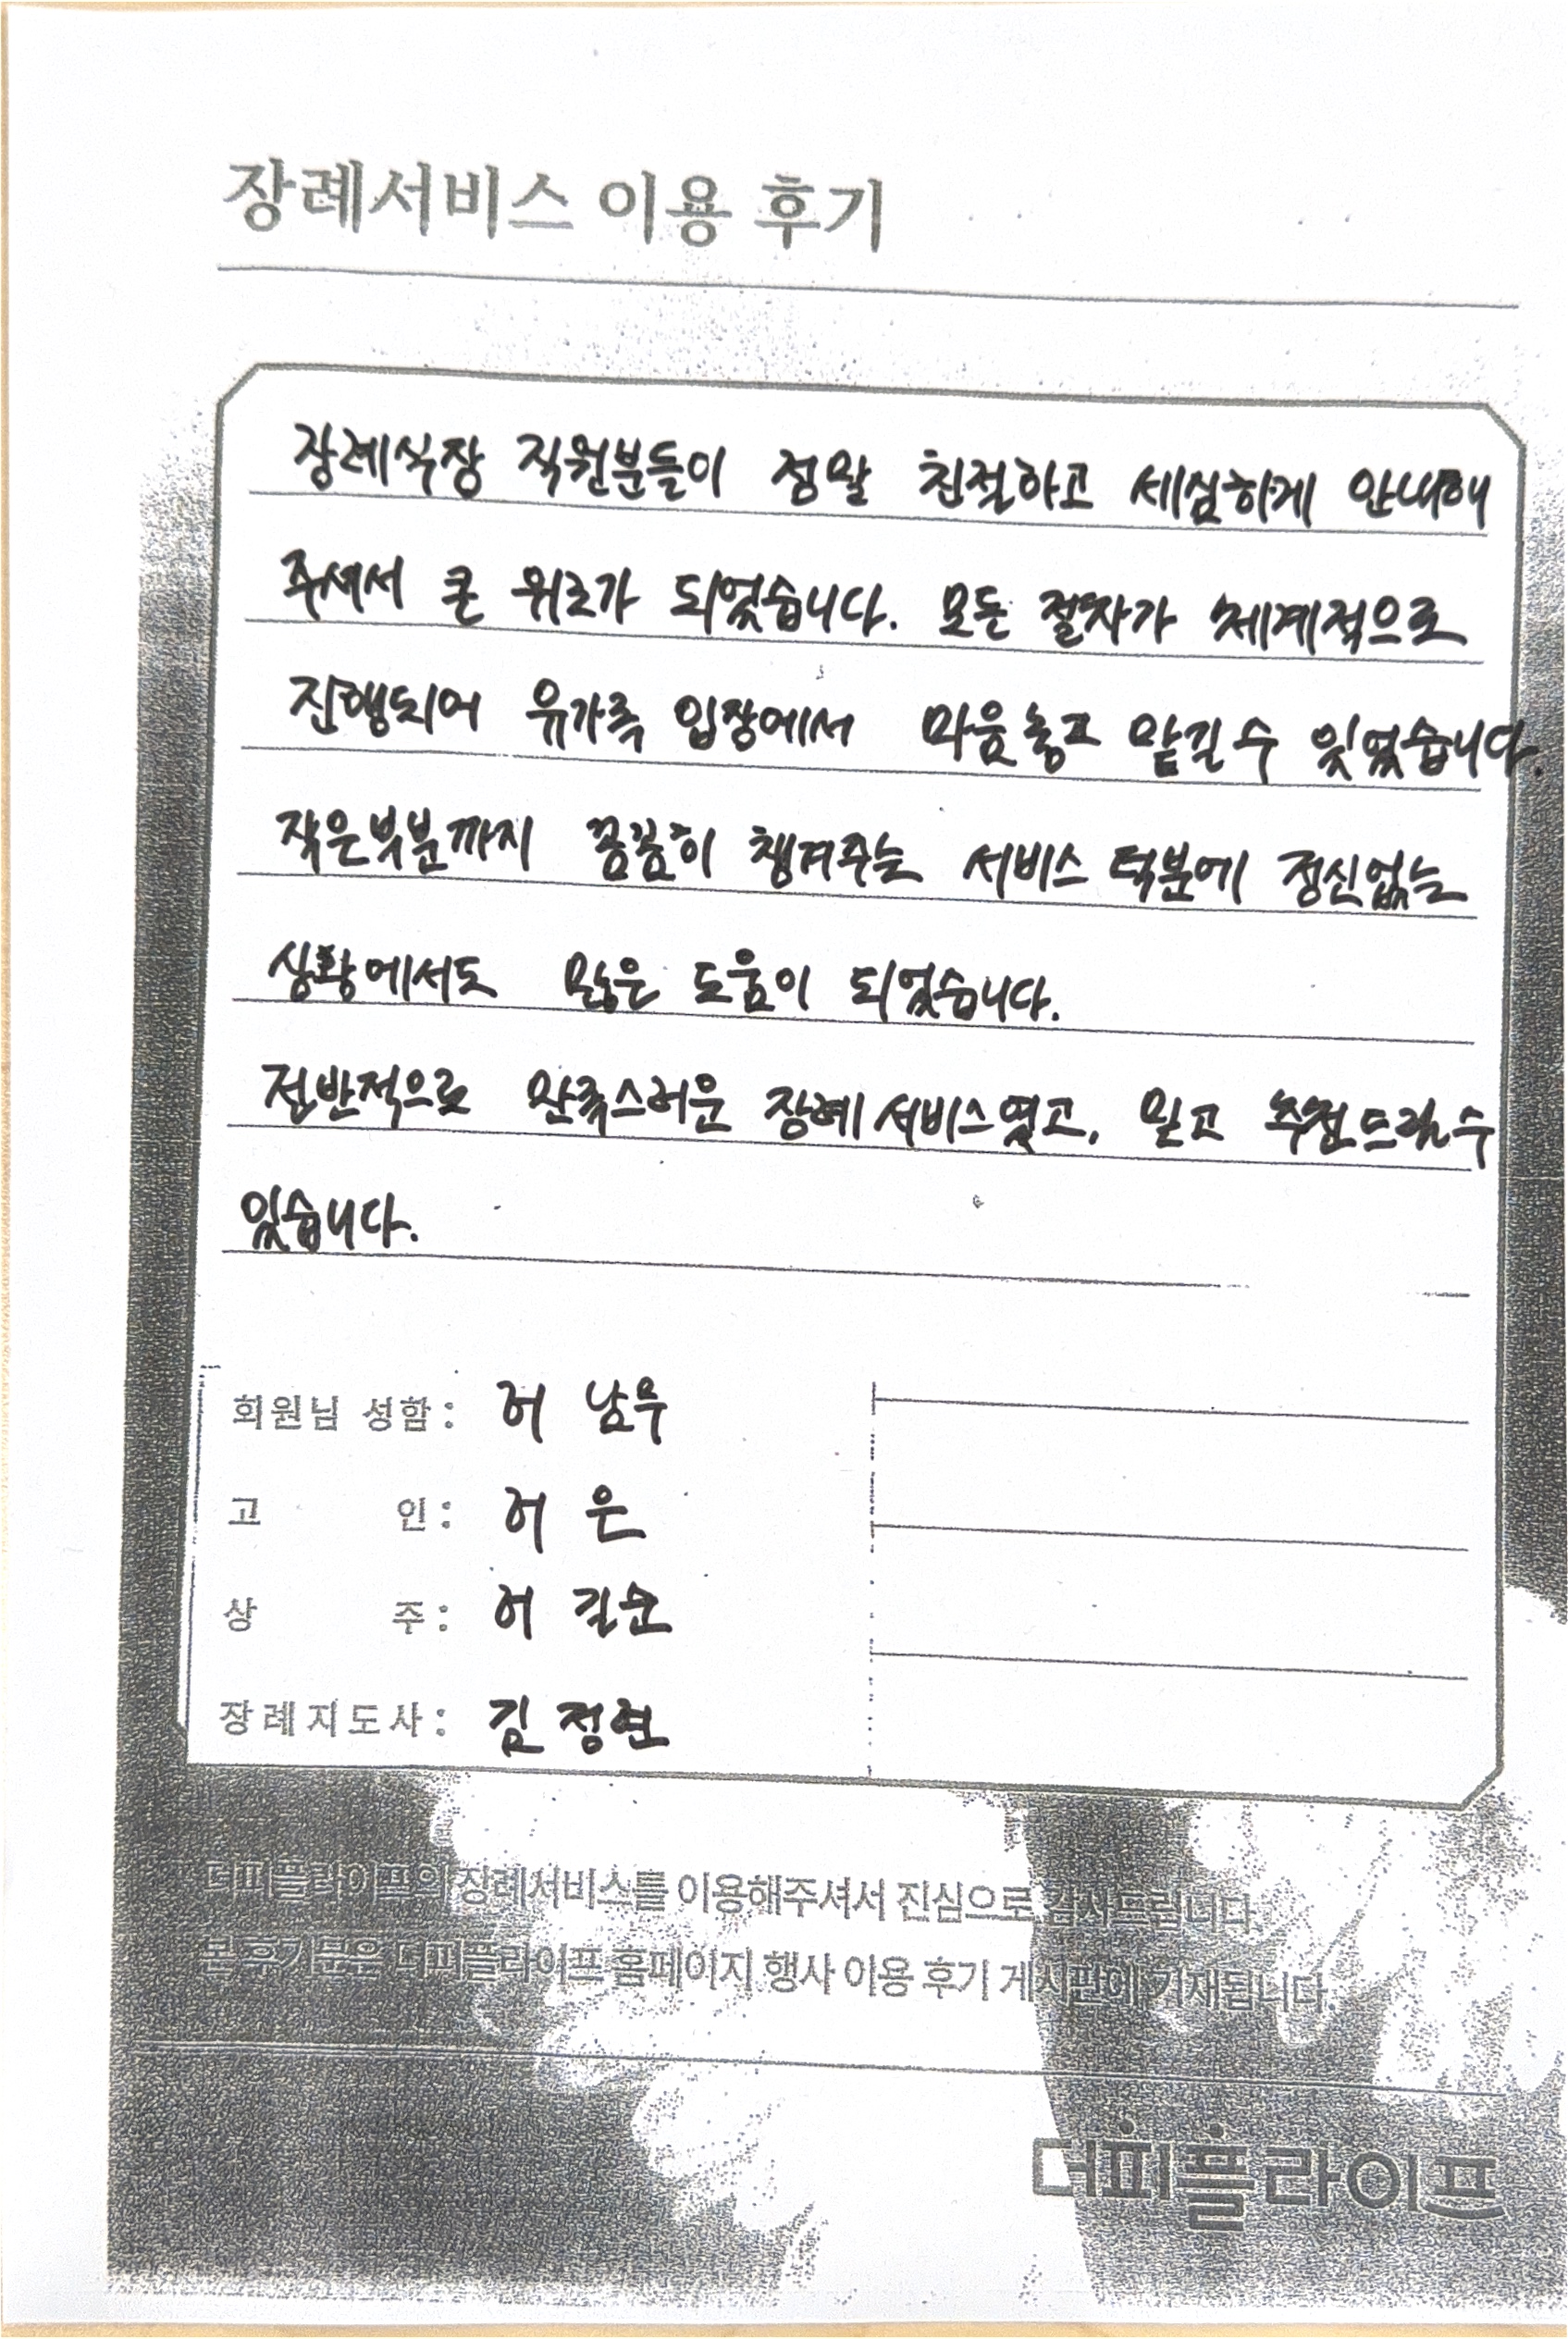 장례서비스 이용 후기
장례식장 직원분들이 정말 친절하고 세심하게 안내해
주셔서 큰 위로가 되었습니다. 모든 절차가 체계적으로
진행되어 유가족 입장에서 마음놓고 맡길수 있었습니다.
작은부분까지 꼼꼼히 챙겨주는 서비스 덕분에 정신없는
상황에서도 많은 도움이 되었습니다.
전반적으로 만족스러운 장례서비스였고, 믿고 추천드릴수
있습니다.
회원님 성함: 허 남우
고 인: 허 은
상 주: 허 길순
장례지도사: 김정현
더피플라이프의 장례서비스를 이용해주셔서 진심으로 감사드립니다.
본 후기문은 더피플라이프 홈페이지 행사 이용 후기 게시판에 기재됩니다.
더피플라이프